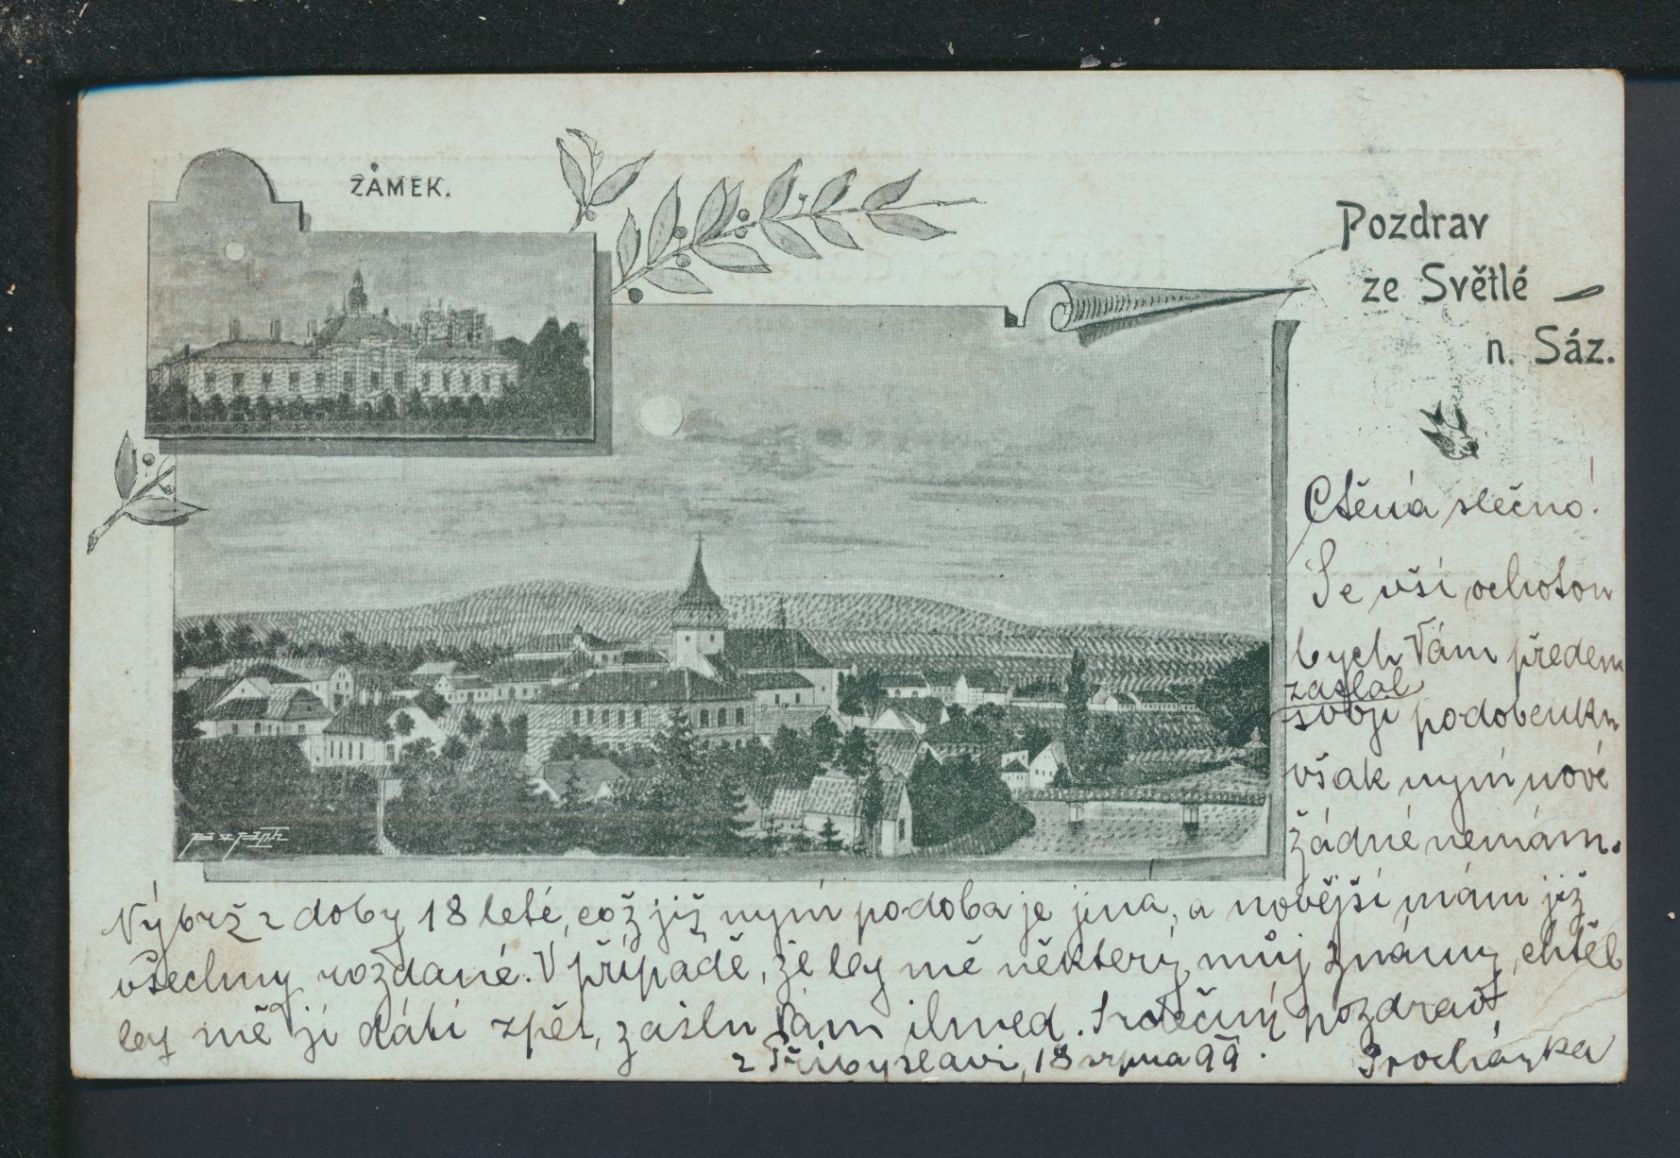 ZÁMEK.
Pozdrav
ze Světlé
n. Sáz.
Ctěná slečno!
Se vší ochotou
bych Vám předem
zaslal
svoji podobenku
však nyní nové
žádné nemám.
Nýbrž z doby 18 leté, což již nyní podoba je jina, a novější mám již
všechny rozdané. V případě, že by mě některý můj známy, chtěl
by mě ji dáti zpět, zašlu Vám ihned. Srdečný pozdrav
z Přibyslavi, 18 srpna 99. Procházka